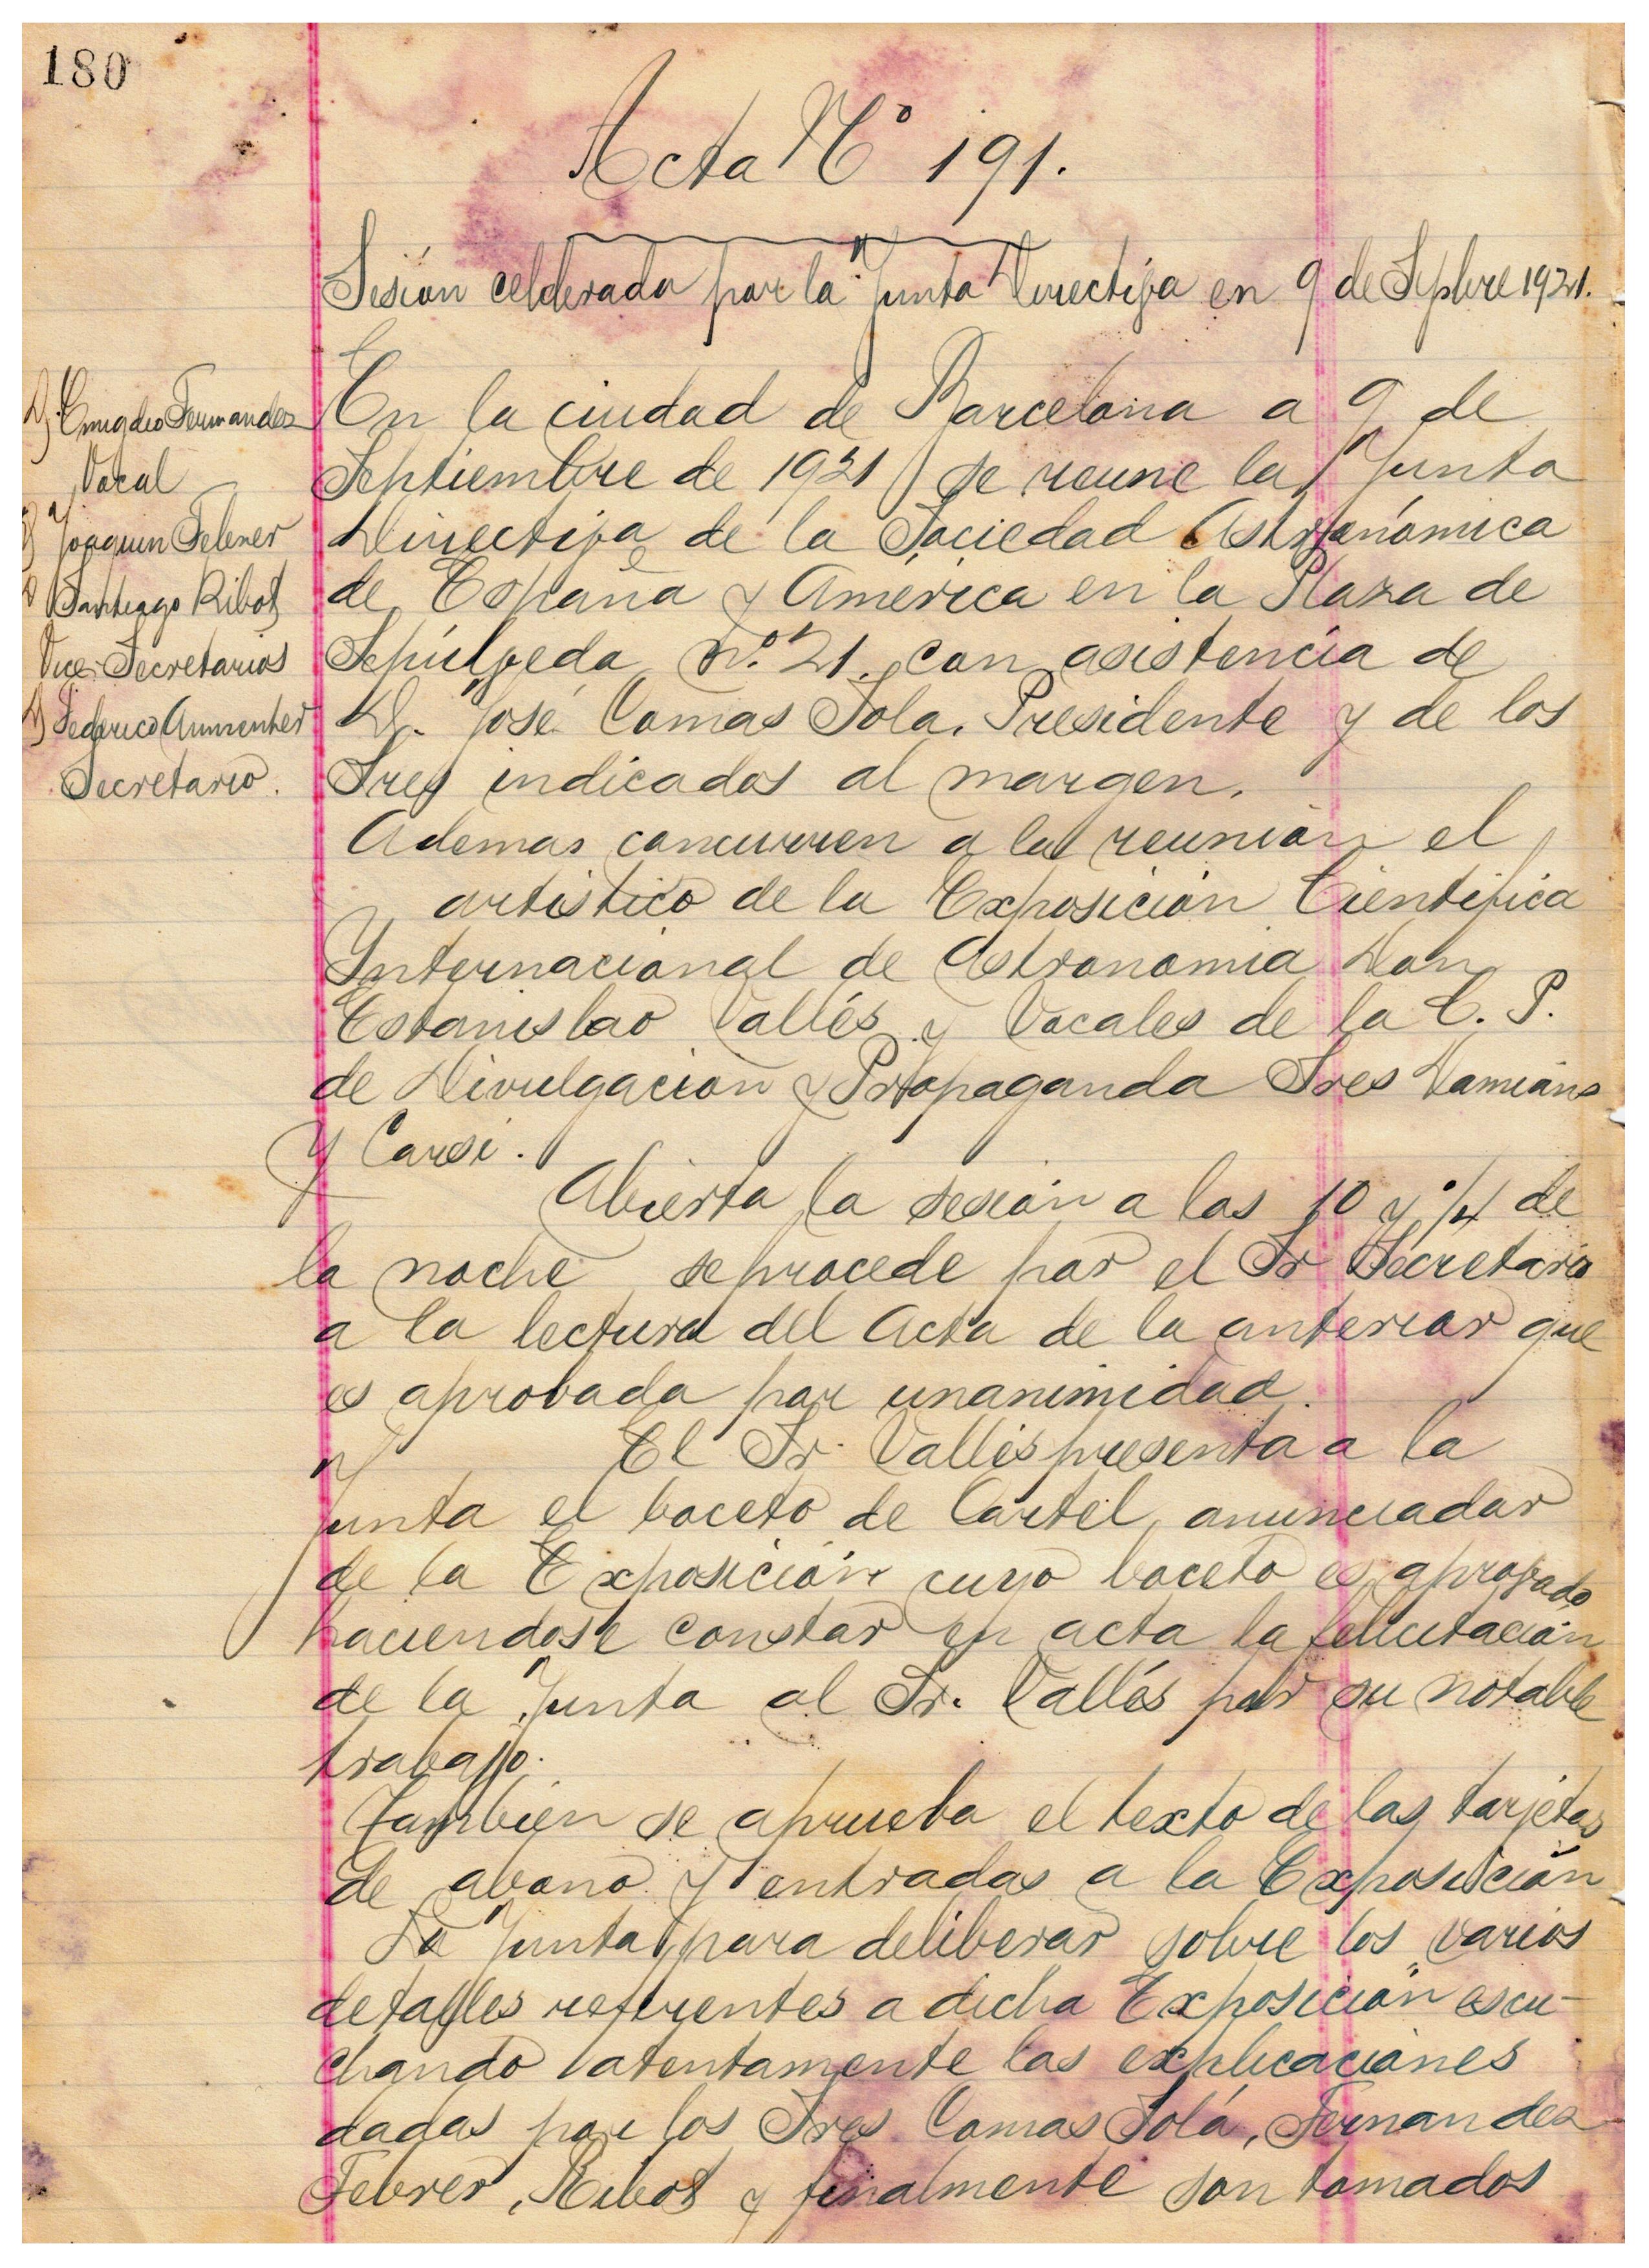 180
Acta Nº 191.
Sesión celderada por la Junta Directiva en 9 de Sepbre 1921.
D. Emigdio Fernandez
Vocal
D. Joaquin Febrer
D. Santiago Ribot
Vice-Secretarios
D. Federico Armenter
Secretario.
En la ciudad de Barcelona a 9 de
Septiembre de 1921 se reune la Junta
Directiva de la Sociedad Astronómica
de España y América en la Plaza de
Sepúlveda nº. 21. con asistencia de
D. José Comas Sola. Presidente y de los
Sres indicados al margen.
Ademas concurren a la reunión el
artistico de la Exposición Cientifica
Internacional de Astronomia Don
Estanislao Vallés y Vocales de la C. P.
de Divulgacion y Propaganda Sres Damians
y Carsi.
Abierta la sesión a las 10 y ¼ de
la noche se procede por el Sr Secretario
a la lectura del Acta de la anterior que
es aprobada por unanimidad.
El Sr. Vallés presenta a la
Junta el boceto de Cartel anunciador
de la Exposición cuyo boceto es aprovado
haciendose constar en acta la felicitación
de la Junta al Sr. Vallés por su notable
trabajo.
Tambien se aprueba el texto de las tarjetas
de abono y entradas a la Exposición
La Junta para deliberar sobre los varios
detalles referentes a dicha Exposición escu-
chando atentamente las explicaciones
dadas por los Sres Comas Solá, Fernandez
Febrer, Ribot y finalmente son tomados